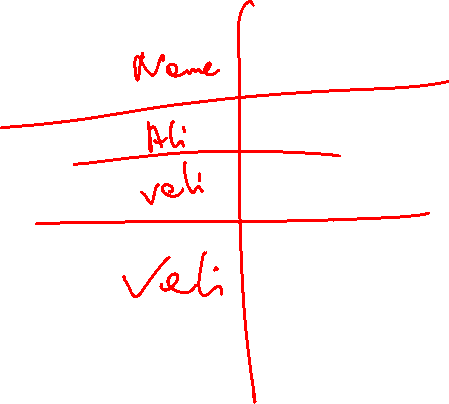 Name
Ali
veli
Veli